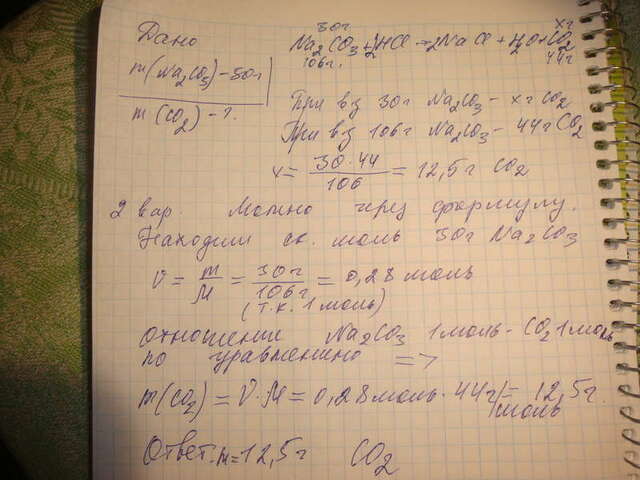 Дано
m(Na2CO3)-30г
m(CO2)-?
30г xг
Na2CO3+2HCl→2NaCl+H2O+CO2
106г. 44г
При вз 30г Na2CO3- xг CO2
При вз 106г Na2CO3- 44г CO2
x= 30·44/106 = 12,5г CO2
2 вар. Можно через формулу.
Находим ск. моль 30г Na2CO3
ν = m/M = 30г/106г = 0,28моль
(т.к. 1моль)
Отношение Na2CO3 1моль-CO2 1моль
по уравнению =>
m(CO2)=ν·M=0,28моль·44г/моль= 12,5г.
Ответ. m=12,5г CO2